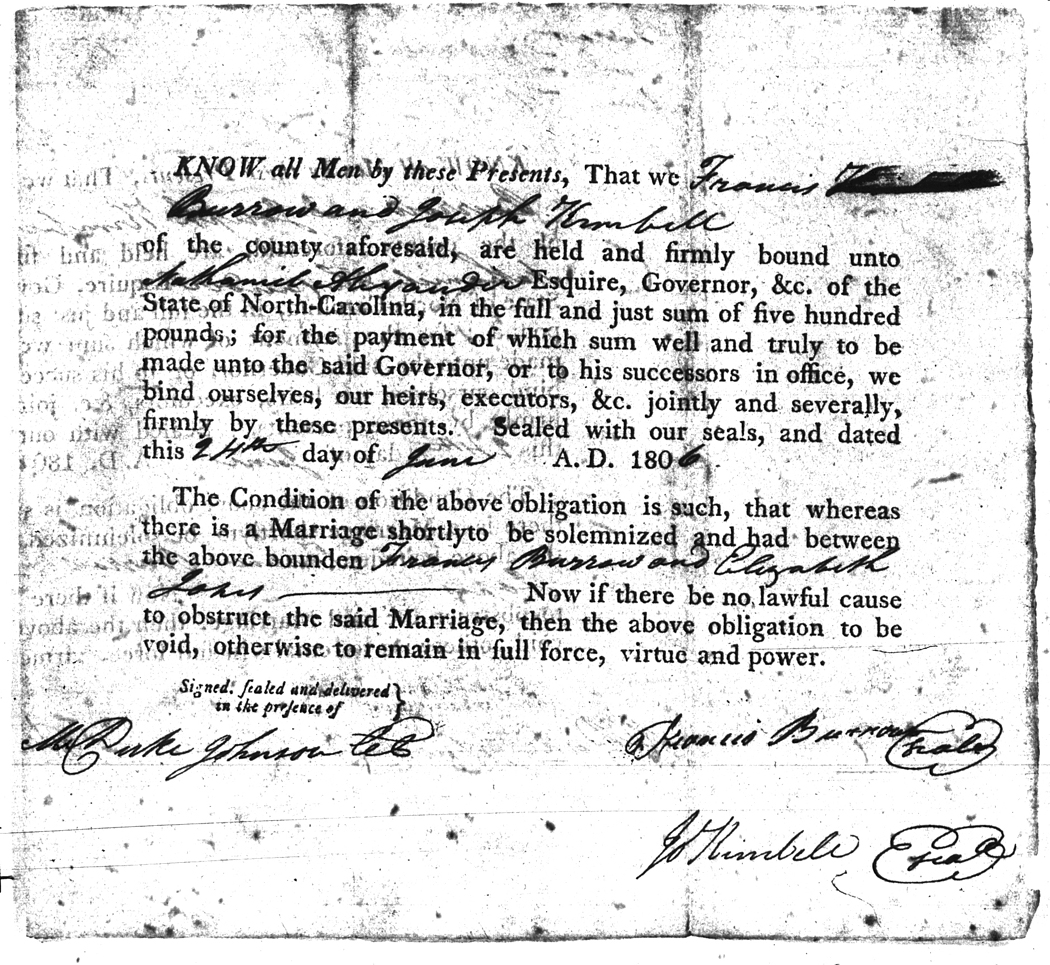 KNOW all Men by these Presents, That we Francis
Burrow and Joseph Kimbell
of the county aforesaid, are held and firmly bound unto
Nathaniel Alexander Esquire, Governor, &c. of the
State of North-Carolina, in the full and just sum of five hundred
pounds; for the payment of which sum well and truly to be
made unto the said Governor, or to his successors in office, we
bind ourselves, our heirs, executors, &c. jointly and severally,
firmly by these presents. Sealed with our seals, and dated
this 24th day of June A. D. 1806
The Condition of the above obligation is such, that whereas
there is a Marriage shortly to be solemnized and had between
the above bounden Francis Burrow and Elizabeth
Now if there be no lawful cause
to obstruct the said Marriage, then the above obligation to be
void, otherwise to remain in full force, virtue and power.
Signed, sealed and delivered
in the presence of
Duke Johnson Francis Burrow Seal
Jo Kimbell Seal